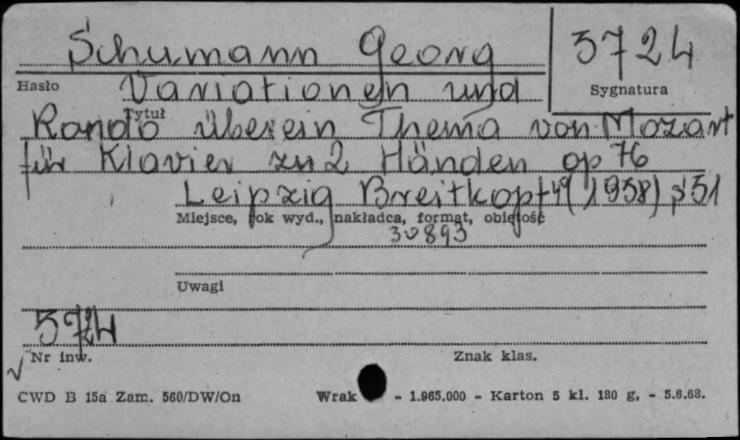 Schumann Georg
5724
Hasło
Sygnatura
Variationen und
Tytuł
Rondo über ein Thema von Mozart
für Klavier zu 2 Händen op 76
Leipzig Breitkopf 49 (1958) s 51
Miejsce, rok wyd., nakładca, format, objętość
30893
Uwagi
5724
Nr inw.
Znak klas.
CWD B 15a Zam. 560/DW/On Wrak - 1.965.000 - Karton 5 kl. 180 g. - 5.6.68.